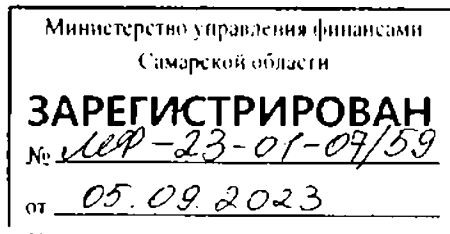 Министерство управления финансами
Самарской области
ЗАРЕГИСТРИРОВАН
№ МФ-23-01-07/59
от 05.09.2023